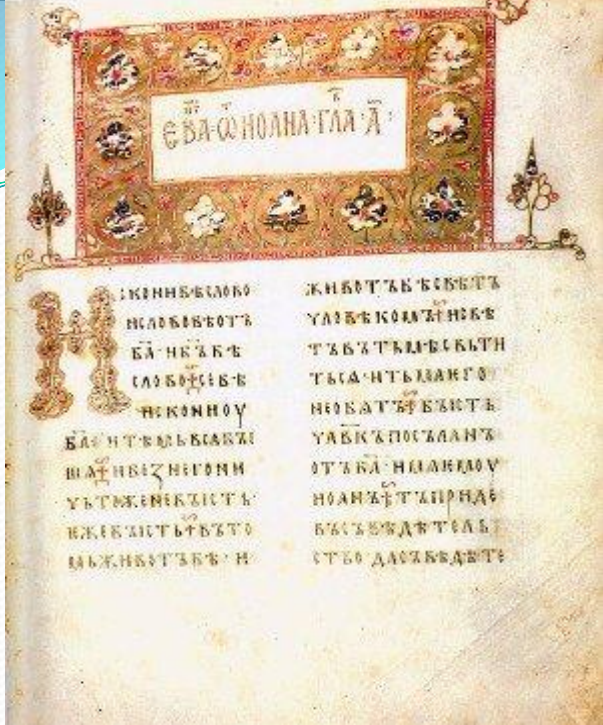 ЄВА·Ѿ ИОАНА·ГЛА·А҃·
ИСКОНИБѢСЛОВО
ИСЛОВОБѢОТЪ
БА҃·ИБ҃ЪБѢ
СЛОВО⁘СЕБѢ
ИСКОНИОУ
БА҃·ИТѢМЬВЬСꙖБЪІ
ШѦ⁘ИБЕЗНЕГОНИ
ЧЬТОЖЕНЕБЪІСТЬ·
ѤЖЕБЪІСТЬ⁘ВЪТО
МЬЖИВОТЪБѢ·И
ЖИВОТЪБѢСВѢТЪ
ЧЛОВѢКОМЪ⁘ИСВѢ
ТЪВЪТЬМѢСВЬТИ
ТЬСѦ·ИТЬМАѤГО
НЕОБѦТЪ⁘БЪІСТЬ
ЧЛ҃ВКЪПОСЪЛАНЪ
ОТЪБА҃·ИМѦѤМОУ
ИОАНЪ⁘ТЪПРИДЕ
ВЪСЪВѢДѢТЕЛЬ
СТВО·ДАСЪВѢДѢТЕ